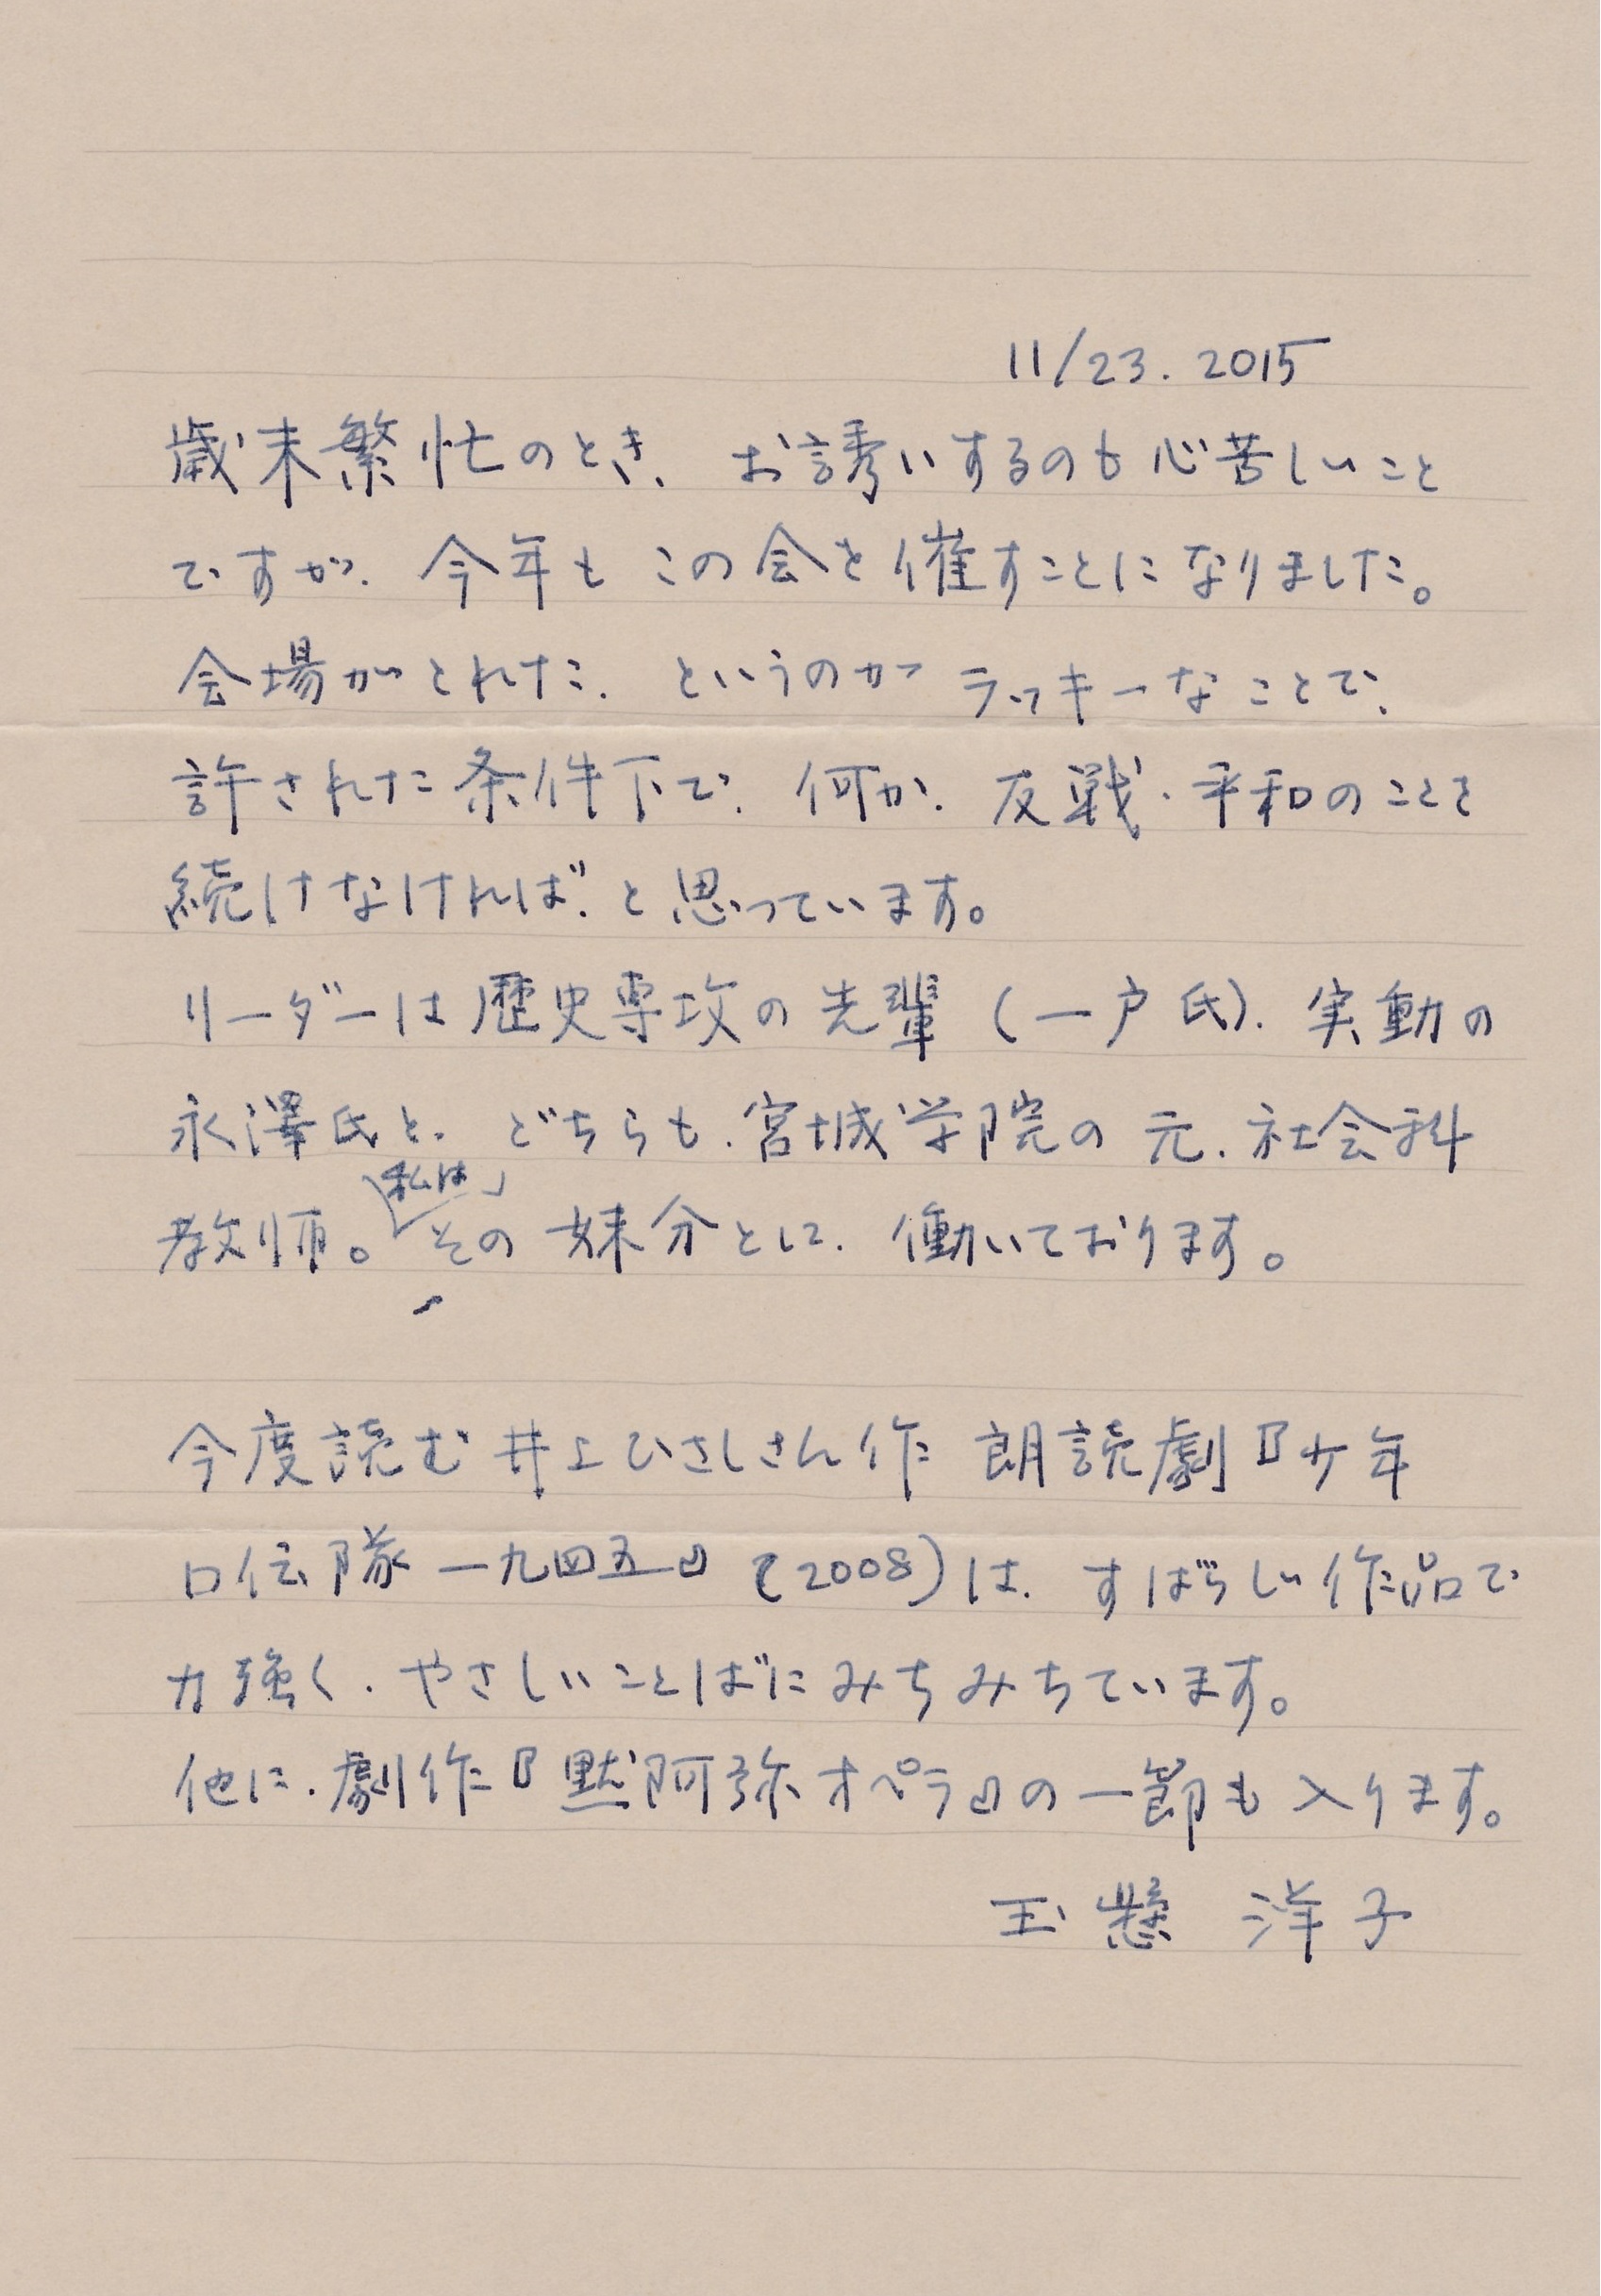 11/23. 2015
歳末繁忙のとき、お誘いするのも心苦しいこと
ですが、今年もこの会を催すことになりました。
会場がとれた、というのがラッキーなことで、
許された条件下で、何か、反戦・平和のことを
続けなければ、と思っています。
リーダーは歴史専攻の先輩(一戸氏)、実動の
永澤氏と、どちらも、宮城学院の元、社会科
教師。私はその妹分とに、働いております。
今度読む井上ひさしさん作 朗読劇『少年
口伝隊一九四五』(2008)は、すばらしい作品で
力強く、やさしいことばにみちみちています。
他に、劇作『黙阿弥オペラ』の一節も入ります。
玉懸 洋子